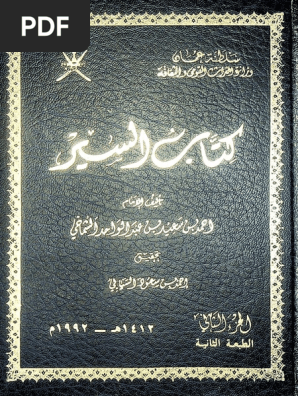 PDF
سلطنة عمان
وزارة التراث القومي والثقافة
كتاب السير
تأليف الإمام
احمد بن سعيد بن عبد الواحد الشماخي
تحقيق
احمد بن سعود السيابي
الجزء الثاني
الطبعة الثانية
١٤١٢هـ - ١٩٩٢م